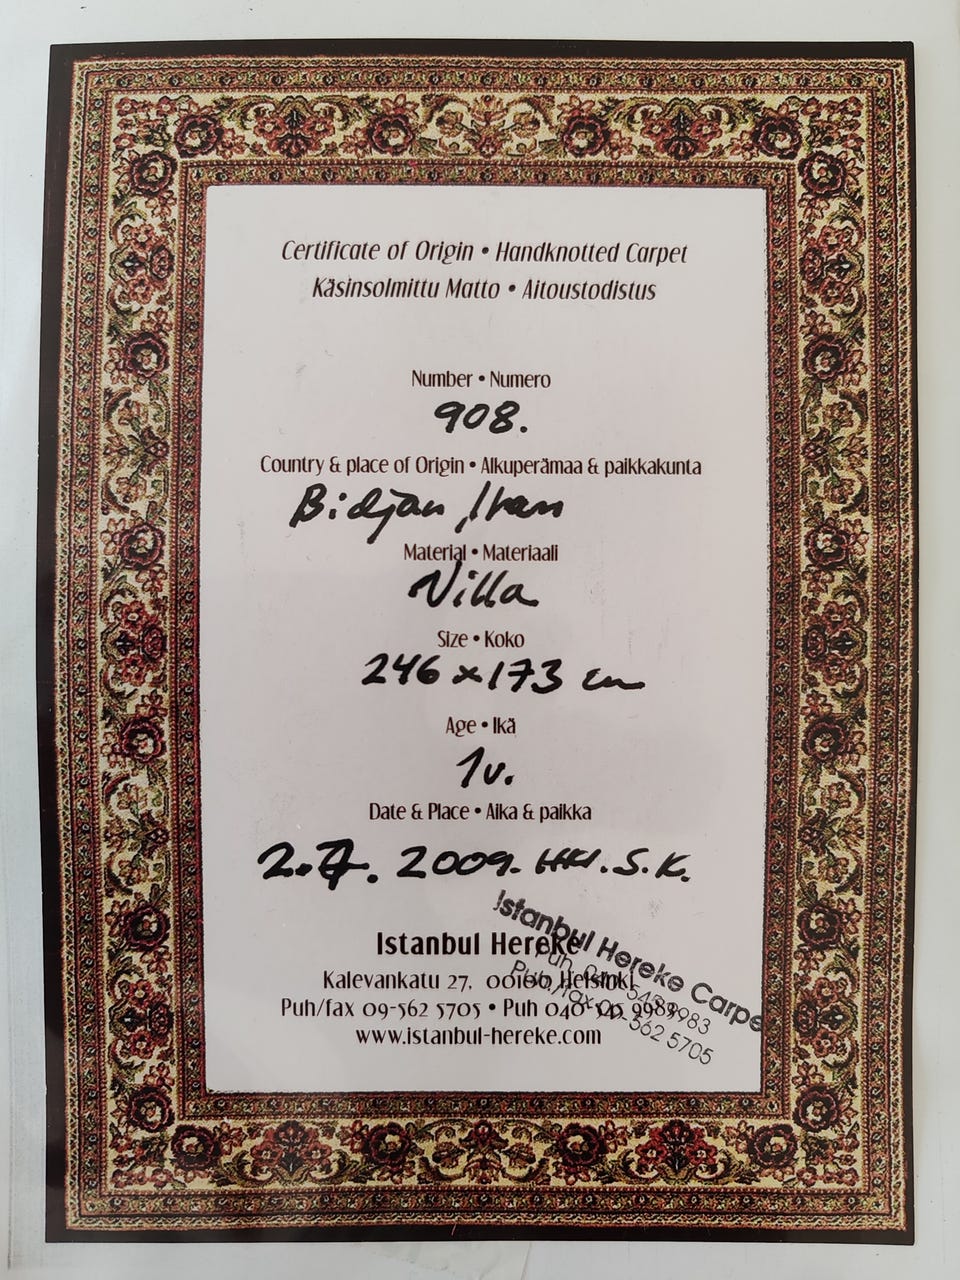 Certificate of Origin • Handknotted Carpet
Käsinsolmittu Matto • Aitoustodistus
Number • Numero
908.
Country & place of Origin • Alkuperämaa & paikkakunta
Bidjan, Iran
Material • Materiaali
Villa
Size • Koko
246 x 173 cm
Age • Ikä
1v.
Date & Place • Aika & paikka
2.7. 2009. HKI. S.K.
Istanbul Hereke
Kalevankatu 27, 00100 Helsinki
Puh/fax 09-562 5705 • Puh 040-545 9983
www.istanbul-hereke.com
Istanbul Hereke Carpe
Puh. 040-545 9983
Puh/fax 09-562 5705